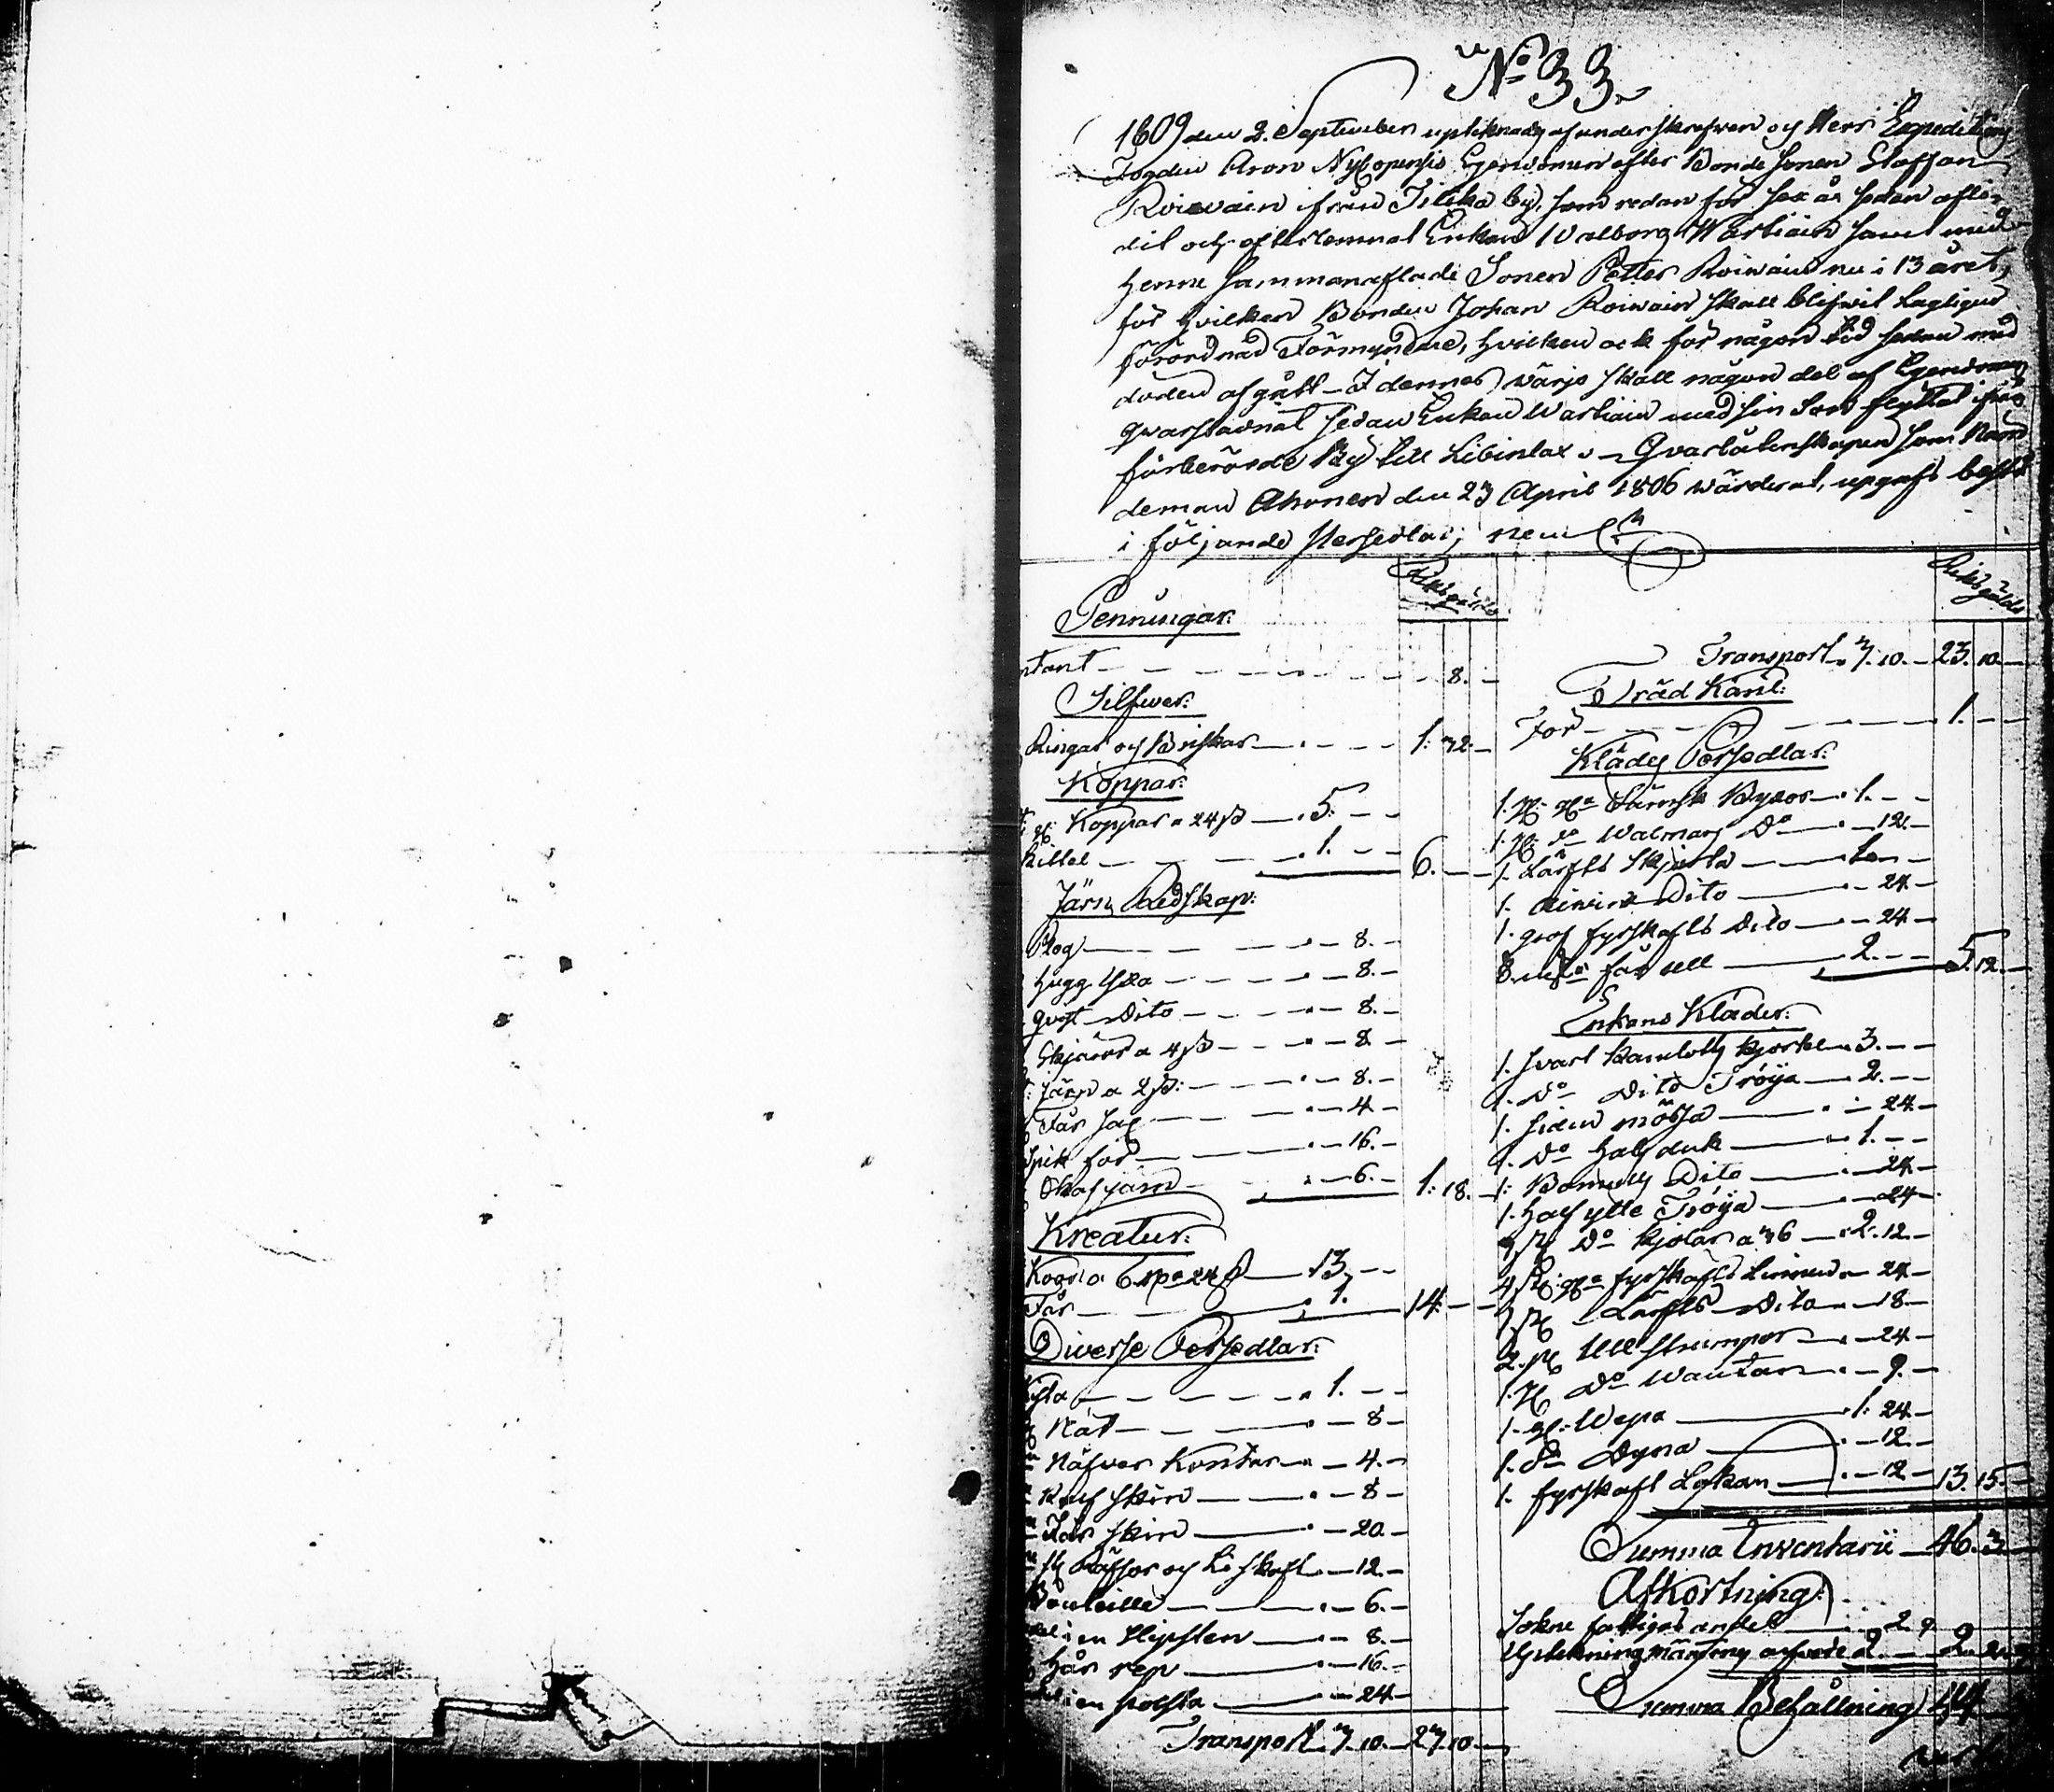 No 33.
1809 den 2. September uptecknades af underskrefven och Herr Expeditions
Fogden Aron Nycopensis Egendomen efter Bonde Sonen Staffan
Roivain ifrån by, som redan för sex år sedan afli-
dit och efterlemnat Enkan Valborg Wartiain samt med
henne sammanaflade Sonen Petter Roivain nu i 13 året,
för hvilken Bonden Johan Roivain skall blifvit Lagligen
förordnad Förmyndare, hvilken ock för någon tid sedan med
döden afgått. I dennes värjo skall någon del af Egendomen
qvarstadnat sedan Enkan Wartiain med sin Son flyttat ifrån
förberörde By till Libinlax. Qvarlåtenskapen som Nämn
deman Ahonen den 23 April 1806 värderat, upgafs bestå
i följande Persedlar; neml.
Riksgälds
Penningar:
ntant 8.
Silfver:
Ringar och Briskor 1: 32.
Koppar:
Koppar a 24 ß 5.
Kittel 1. 6.
Järn Redskap:
Plog 8.
Hugg Yxa 8.
Qvist Dito 8.
Skjäror a 4 ß 8.
Järn a 2 ß: 8.
Får Sax 4
Spik för 16.
Skaf järn 6. 1: 18.
Kreatur:
Koor a 6 24 ß 13.
Får 1. 14.
Diverse Persedlar:
Kista 1.
Nät 8
Näfver Kontar 4.
Kalf skin 8
Får skin 20.
Räfsor och Lieskaft 12.
Bouteille 6.
del i en Slipsten 8.
Hår rep 16.
del i en 24
Transport 7. 10. 27 10.
Riksgälds
Transport 7. 10. 23. 10.
Träd Käril:
För 1.
Kläde Persedlar:
1. Pr Sämsk Byxor 1.
1. Pr Walmars Do 12.
1. Lärfts Skjorta 1.
1. Dito 24
1. grof fyrskafts Dito 24
får ull 2. 5. 12.
Enkans Kläder:
1. svart Kamlotts Kjortel 3.
1. Do Dito Tröija 2.
1. siden mössa 24
1. Do halsduk 1.
1: Bomulls Dito 24
1. half ylle Tröija 24
3 st Do Kjolar a 36 2. 12.
4 st fyrskafts Linnen 24
3 st Lärfts Dito 18
2. pr Ull strumpor 24
1. pr Do Wantar 9.
1. Wepa 1: 24
1. Do Dyna 12.
1. fyrskaft Lakan 12 13. 15.
Summa Inventarii 46. 3.
Afkortning:
Sokne fattigas andel 2. 9.
Upteknings männens arfvode 2. 2.
Summa Behållning 44